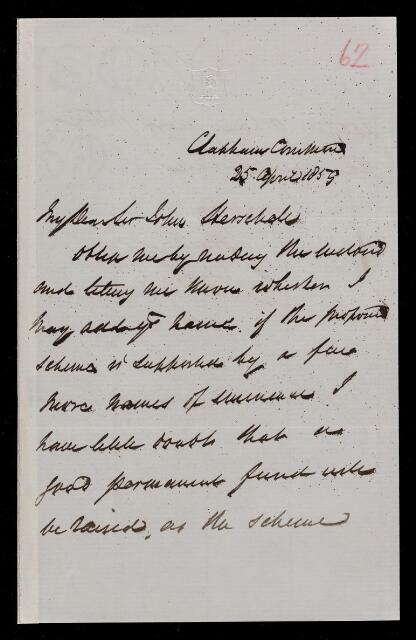 62
Clapham Common
25 April 1859
My Dear Sir John Herschel
Oblige me by reading the enclosed
and letting me know whether I
may add yr name. if the proposed
scheme is supported by a few
more names of eminence I
have little doubt that a
good permanent fund will
be raised, as the scheme